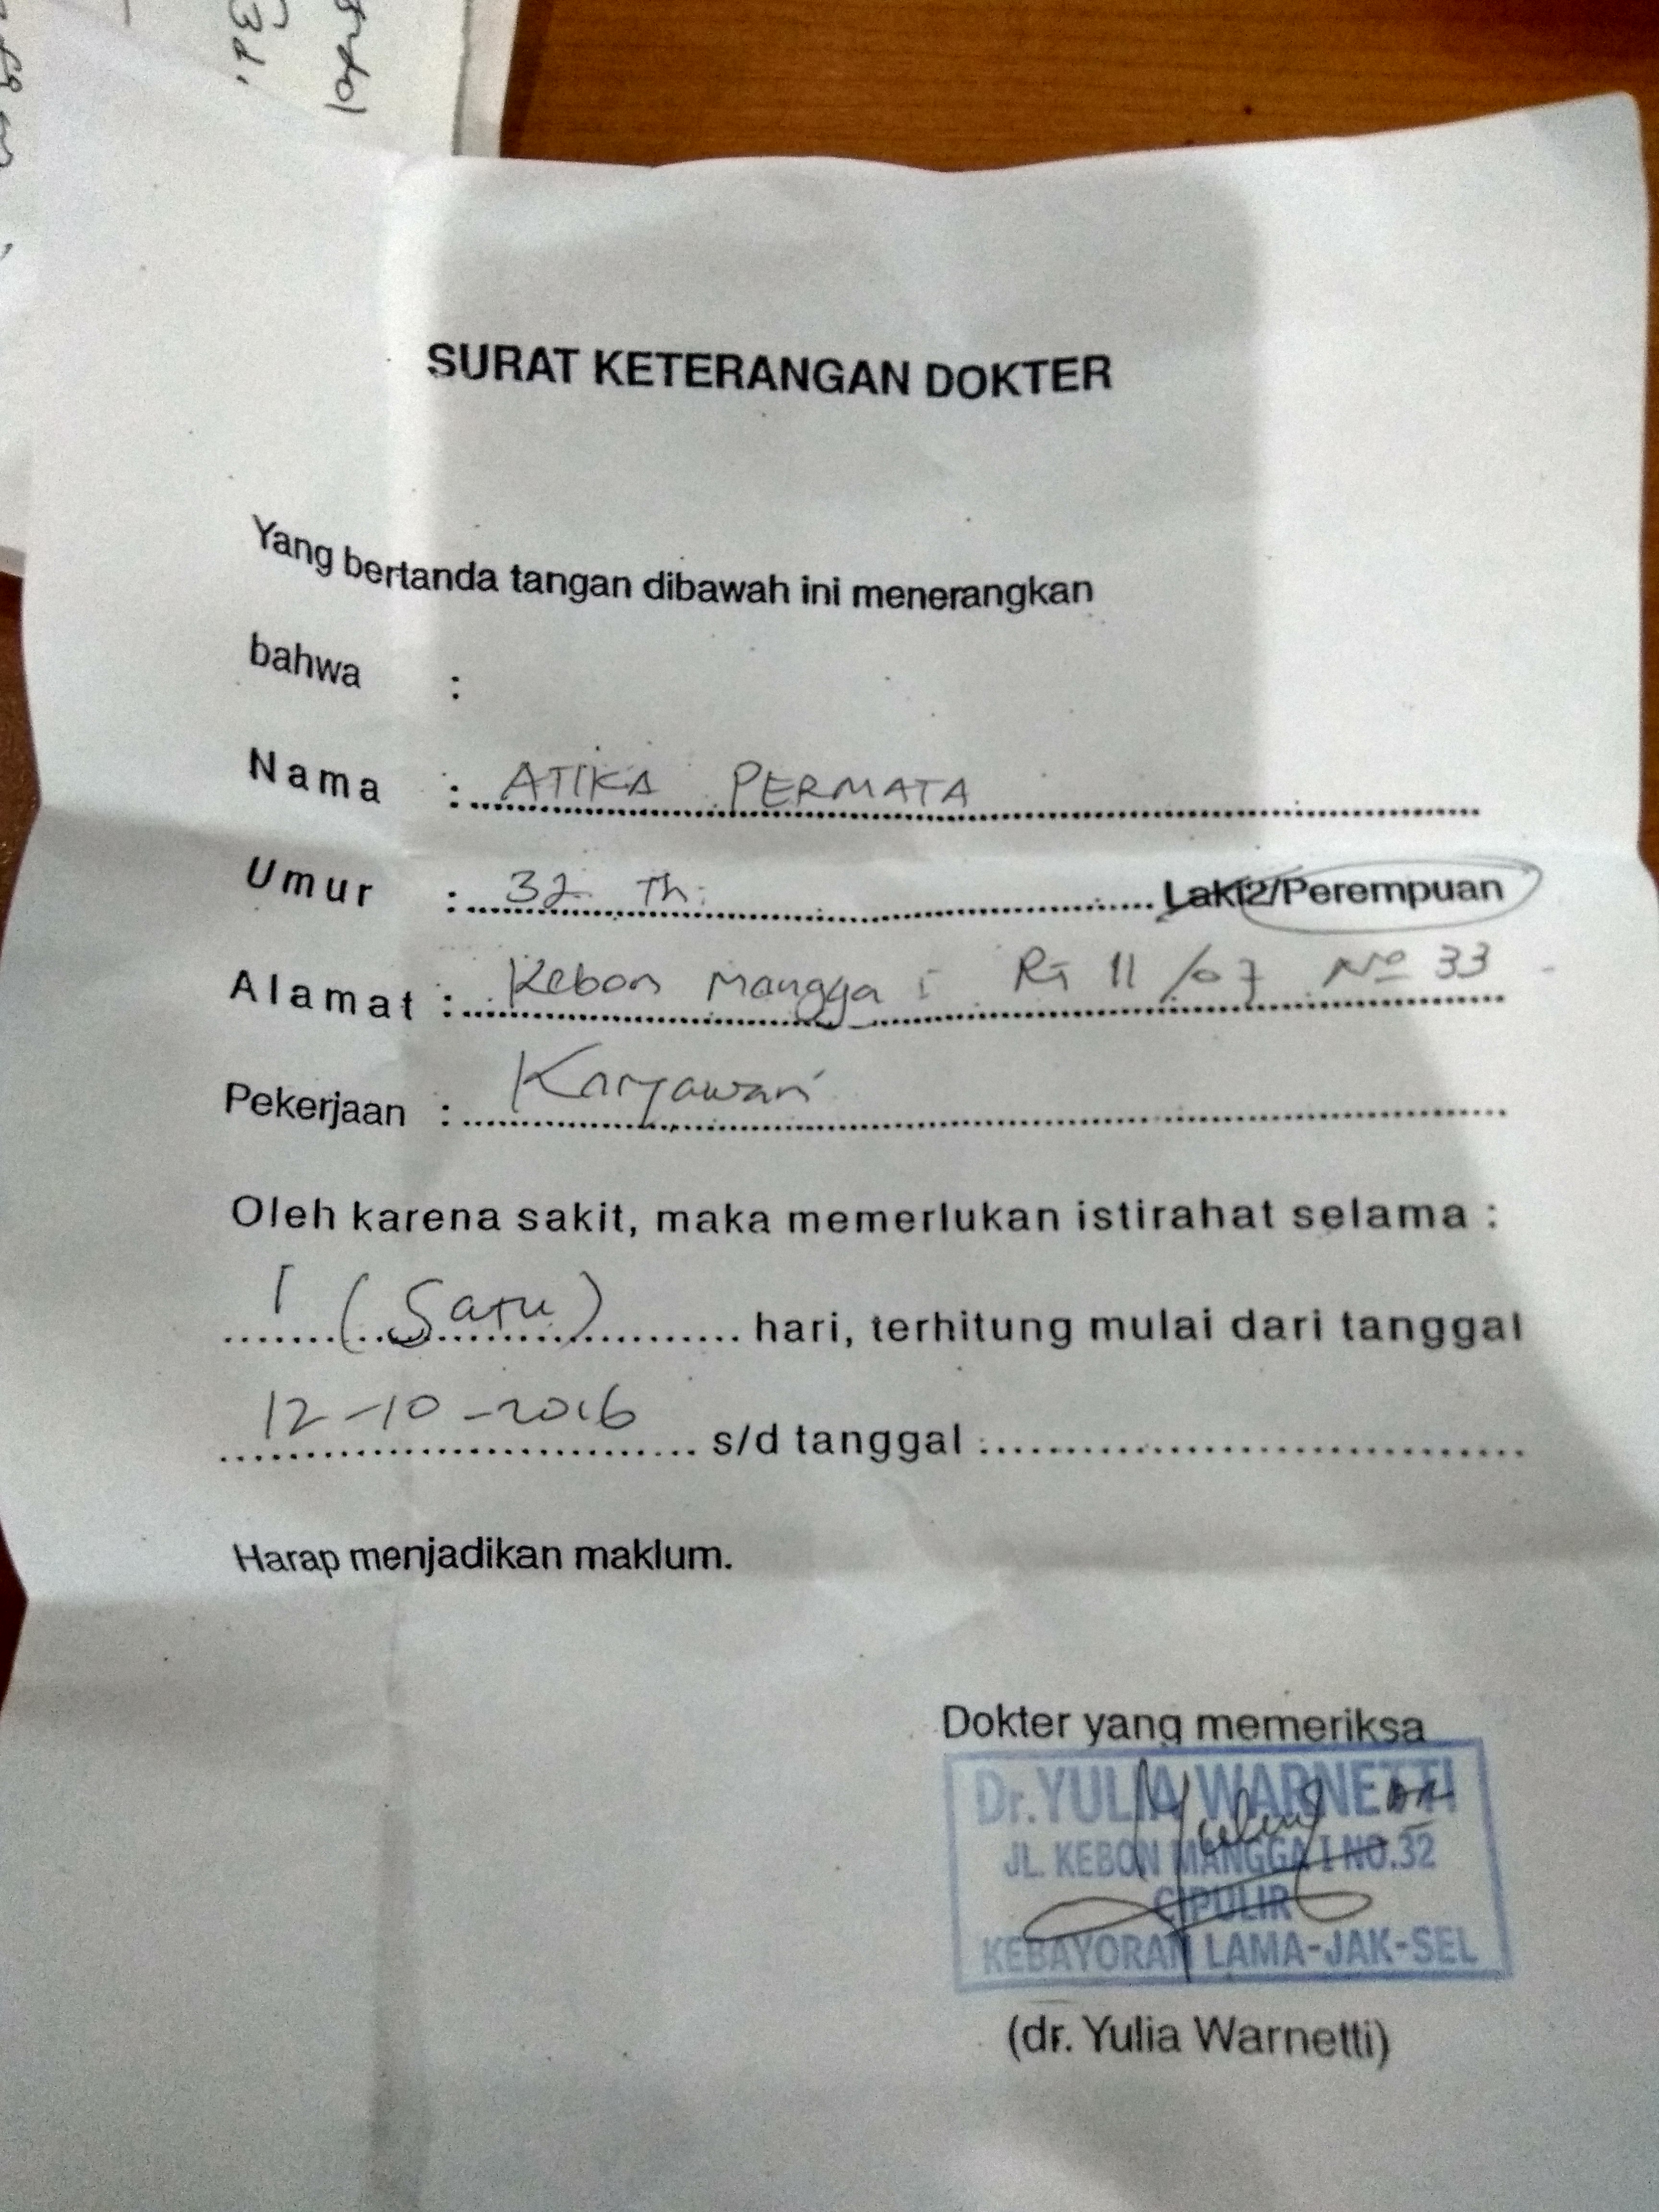 SURAT KETERANGAN DOKTER
Yang bertanda tangan dibawah ini menerangkan
bahwa :
Nama : ATIKA PERMATA
Umur : 32 Th. Laki2/Perempuan
Alamat : Kebon Mangga I RT 11/07 No 33
Pekerjaan : Karyawari
Oleh karena sakit, maka memerlukan istirahat selama :
1 (Satu) hari, terhitung mulai dari tanggal
12-10-2016 s/d tanggal :
Harap menjadikan maklum.
Dokter yang memeriksa
Dr. YULIA WARNETTI
JL. KEBON MANGGA I NO.32
CIPULIR
KEBAYORAN LAMA-JAK-SEL
(dr. Yulia Warnetti)